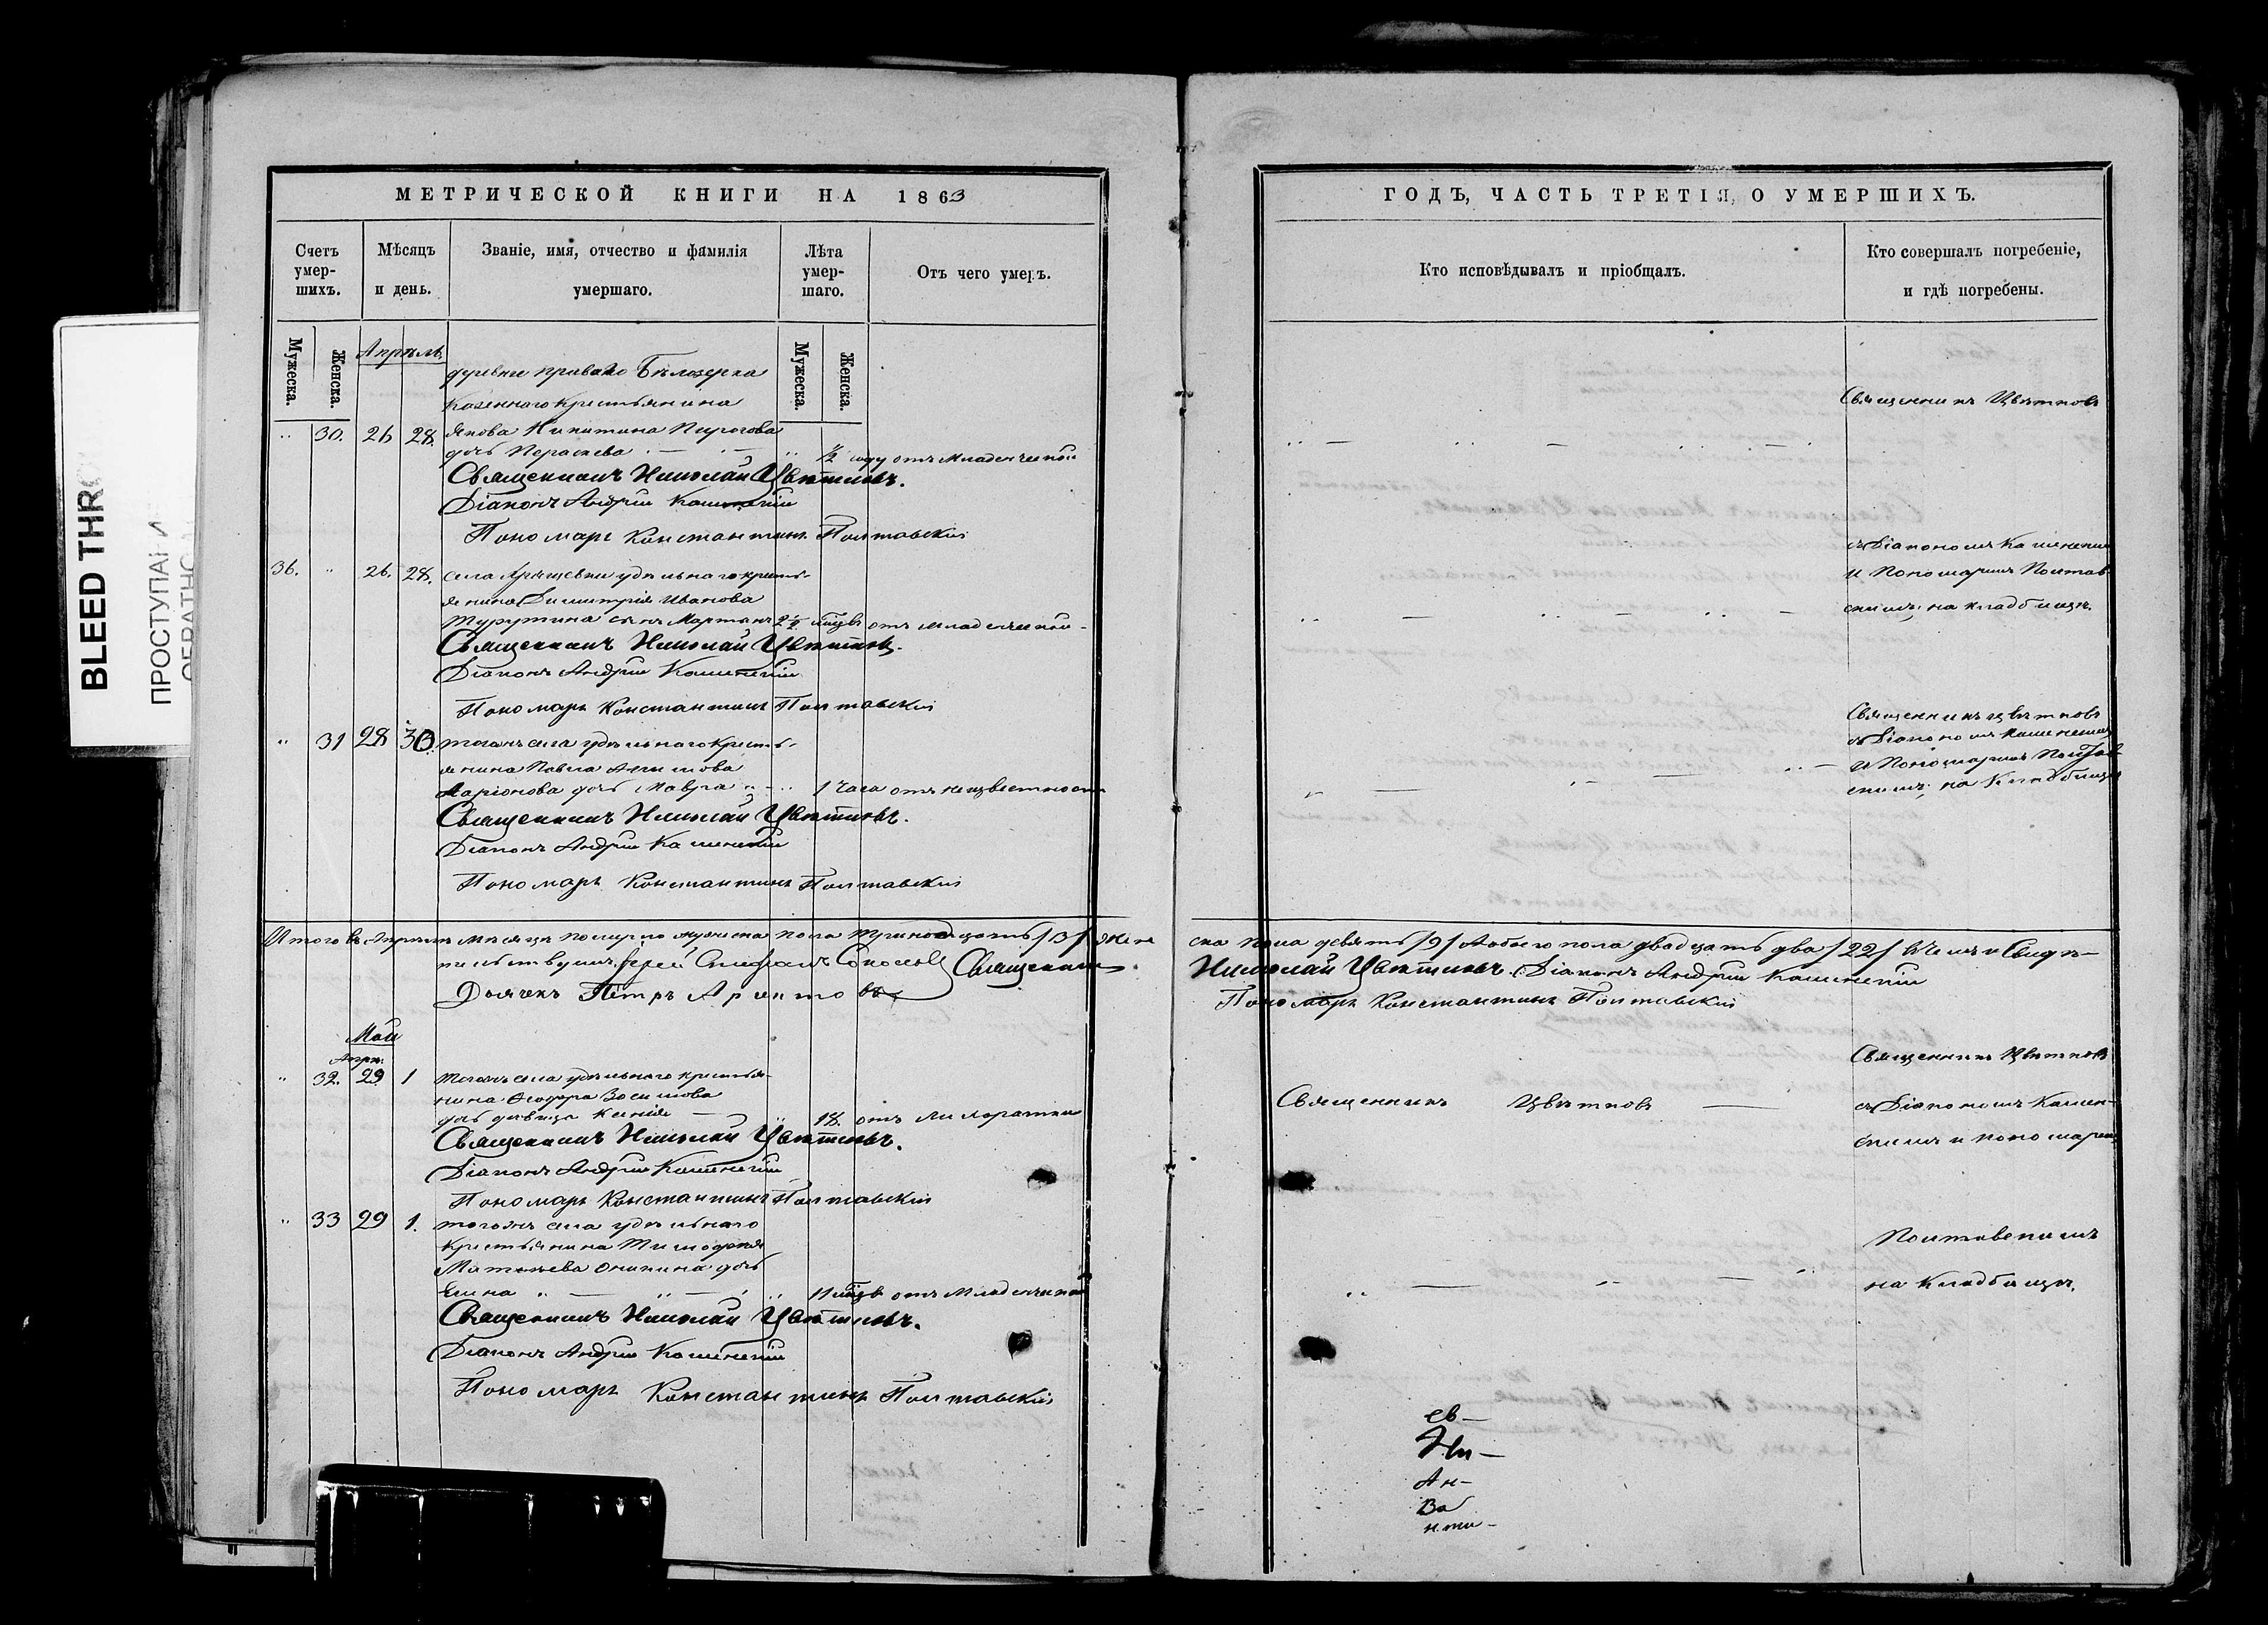 BLEED THR
ПРОСТУПАН
ОБРАТНО
МЕТРИЧЕСКОЙ КНИГИ НА 1863
Счетъ умер-шихъ.
Мѣсяцъ и день.
Званіе, имя, отчество и фамилія умершаго.
Лѣта умер-шаго.
Отъ чего умеръ.
Мужеска.
Женска.
Мужеска.
Женска.
Апрѣль
деревни Бѣлозерка
Казеннаго крестьянина
" 30. 26 28. Якова Никитина Пирогова
дочь Параскева " 1/2 году отъ младенческой
Священникъ Николай Цвѣтковъ.
Діаконъ Андрей Каменскій
Пономарь Константинъ Полтавскій
36. " 26. 28. села удѣльнаго кресть-
янина Димитрія Иванова
сынъ Мартынъ 2 1/2 мѣсц. отъ младенческой
Священникъ Николай Цвѣтковъ.
Діаконъ Андрей Каменскій
Пономарь Константинъ Полтавскій
" 31 28 30. тогожъ села удѣльнаго кресть-
янина Павла
Ларіонова дочь Мавра " 1 часа отъ неизвестности
Священникъ Николай Цвѣтковъ.
Діаконъ Андрей Каменскій
Пономарь Константинъ Полтавскій
Итого въ Апрѣлѣ мѣсяцѣ померло мужеска пола тринадцать /13/ жен
тельствуемъ. Іерей Стефанъ Соколовъ Священникъ
Дьячекъ Петръ
Май
Апрѣ.
" 32. 29 1 тогожъ села удѣльнаго крестья-
нина Ѳедора Зосимова
дочь дѣвица Ксенія " 18. отъ лихорадки
Священникъ Николай Цвѣтковъ.
Діаконъ Андрей Каменскій
Пономарь Константинъ Полтавскій
" 33 29 1. тогожъ села удѣльнаго
крестьянина Тимофея
Матвѣева Оникина дочь
" мѣсц. отъ младенческой
Священникъ Николай Цвѣтковъ.
Діаконъ Андрей Каменскій
Пономарь Константинъ Полтавскій
ГОДЪ, ЧАСТЬ ТРЕТІЯ, О УМЕРШИХЪ.
Кто исповѣдывалъ и пріобщалъ.
Кто совершалъ погребеніе,
и гдѣ погребены.
Священникъ Цвѣтковъ
съ Діакономъ Каменскимъ
и Пономаремъ Полтав-
скимъ, на кладбищѣ.
Священникъ Цвѣтковъ
съ Діакономъ Каменскимъ
и Пономаремъ Полтав-
скимъ, на кладбищѣ
ска пола девять /9/ А обоего пола двадцать два /22/ въ чемъ и свидѣ-
Николай Цвѣтковъ. Діаконъ Андрей Каменскій
Пономарь Константинъ Полтавскій
Священникъ Цвѣтковъ
Священникъ Цвѣтковъ —
съ Діакономъ Камен-
скимъ и пономаремъ
Полтавскимъ
на кладбищѣ.
св —
Ни —
Ан —
Ва